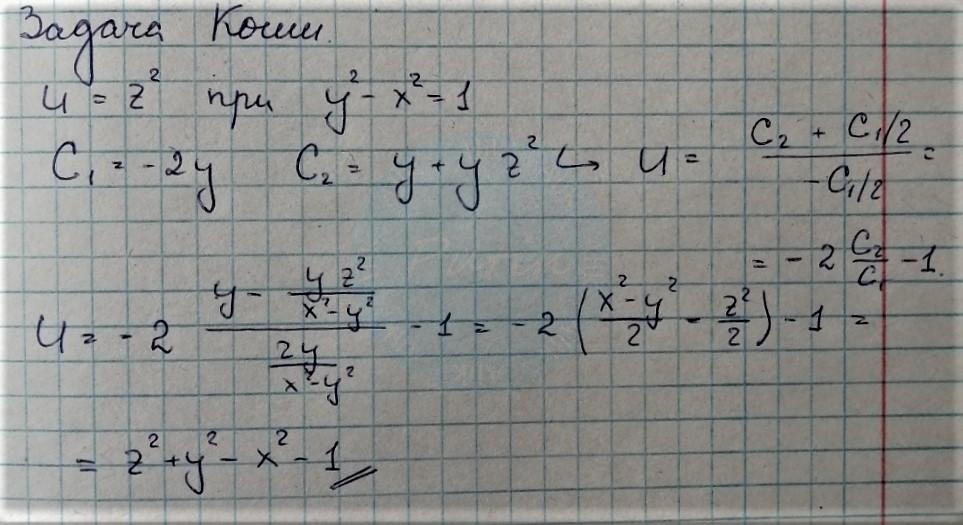 Задача Коши.
u = z² при y² - x² = 1
C₁ = -2y C₂ = y + y z² ↪ u = (C₂ + C₁/2)/(-C₁/2) =
= -2 C₂/C₁ - 1.
u = -2 (y - (y z²)/(x² - y²))/((2y)/(x² - y²)) - 1 = -2 ((x² - y²)/2 - z²/2) - 1 =
= z² + y² - x² - 1